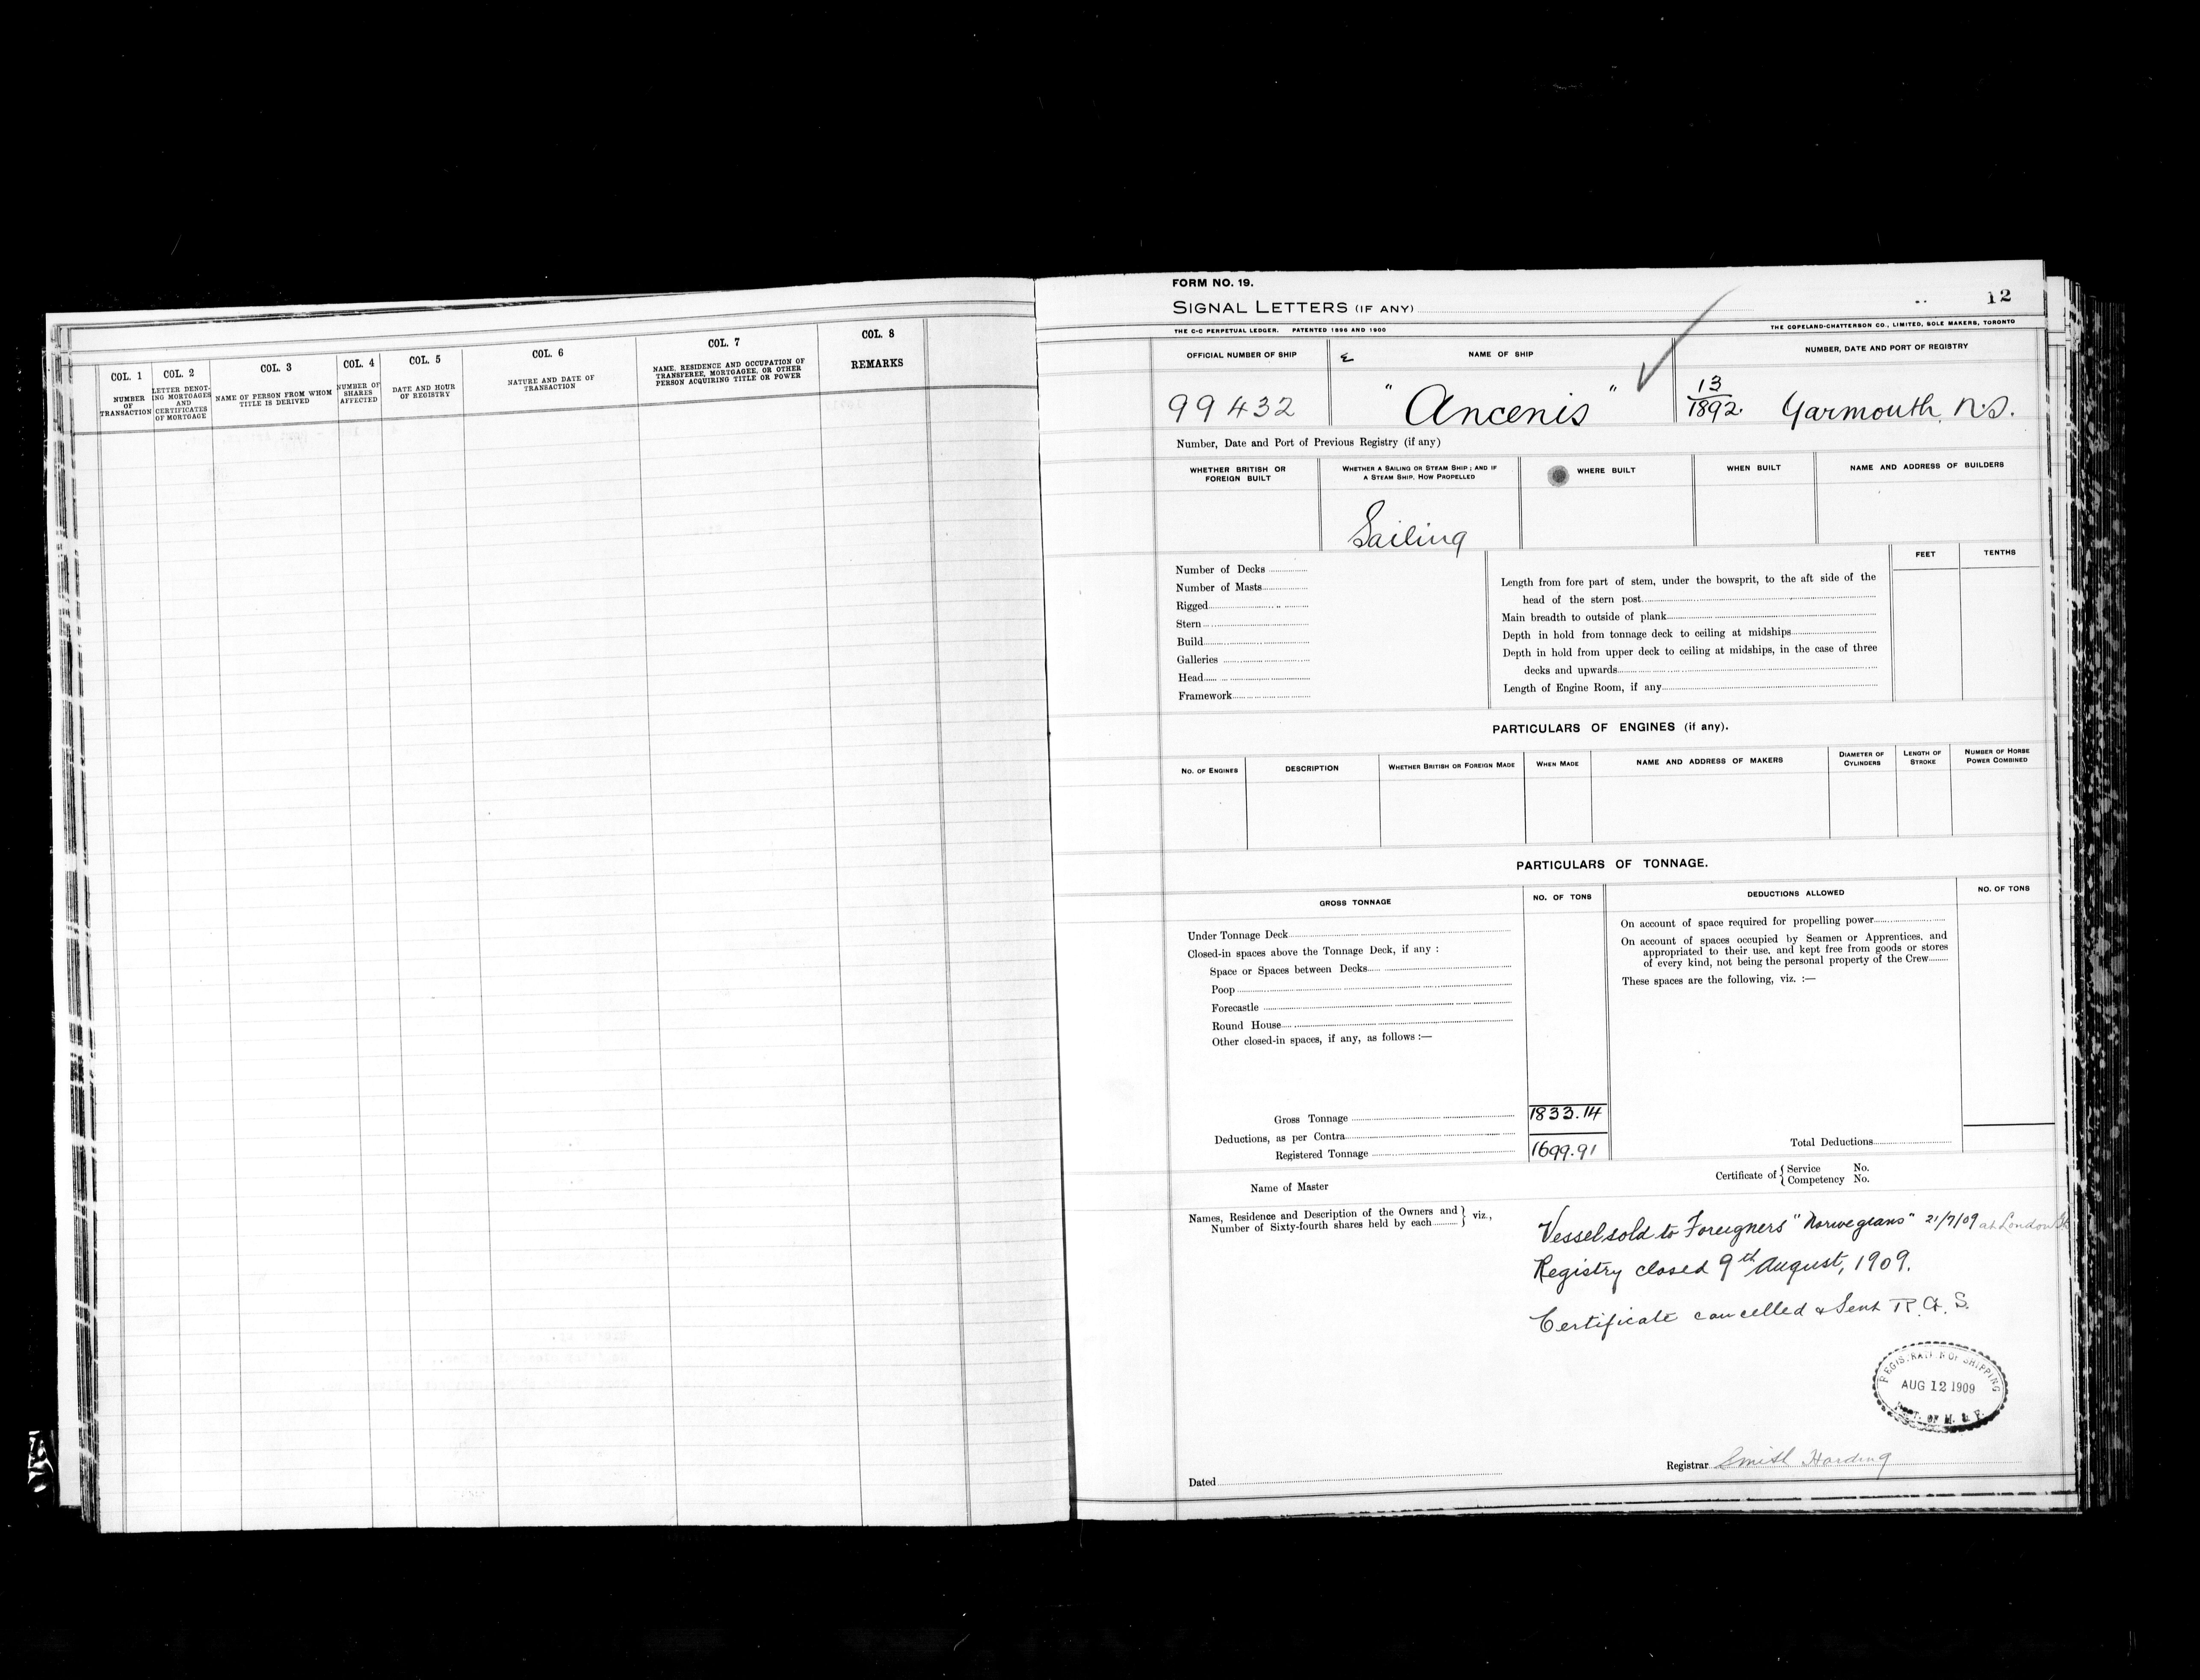 COL. 1
NUMBER
OF
TRANSACTION
COL. 2
LETTER DENOT-
ING MORTGAGES
AND
CERTIFICATES
OF MORTGAGE
COL. 3
NAME OF PERSON FROM WHOM
TITLE IS DERIVED
COL. 4
NUMBER OF
SHARES
AFFECTED
COL. 5
DATE AND HOUR
OF REGISTRY
COL. 6
NATURE AND DATE OF
TRANSACTION
COL. 7
NAME, RESIDENCE AND OCCUPATION OF
TRANSFEREE, MORTGAGEE, OR OTHER
PERSON ACQUIRING TITLE OR POWER
COL. 8
REMARKS
FORM NO. 19.
SIGNAL LETTERS (IF ANY)
12
THE C-C PERPETUAL LEDGER. PATENTED 1896 AND 1900
THE COPELAND-CHATTERSON CO., LIMITED, SOLE MAKERS, TORONTO
OFFICIAL NUMBER OF SHIP
NAME OF SHIP
NUMBER, DATE AND PORT OF REGISTRY
99432
"Ancenis"
13
1892. Yarmouth, N.S.
Number, Date and Port of Previous Registry (if any)
WHETHER BRITISH OR
FOREIGN BUILT
WHETHER A SAILING OR STEAM SHIP; AND IF
A STEAM SHIP, HOW PROPELLED
WHERE BUILT
WHEN BUILT
NAME AND ADDRESS OF BUILDERS
Sailing
FEET
TENTHS
Number of Decks
Number of Masts
Rigged
Stern
Build
Galleries
Head
Framework
Length from fore part of stem, under the bowsprit, to the aft side of the
head of the stern post
Main breadth to outside of plank
Depth in hold from tonnage deck to ceiling at midships
Depth in hold from upper deck to ceiling at midships, in the case of three
decks and upwards
Length of Engine Room, if any
PARTICULARS OF ENGINES (if any).
NO. OF ENGINES
DESCRIPTION
WHETHER BRITISH OR FOREIGN MADE
WHEN MADE
NAME AND ADDRESS OF MAKERS
DIAMETER OF
CYLINDERS
LENGTH OF
STROKE
NUMBER OF HORSE
POWER COMBINED
PARTICULARS OF TONNAGE.
GROSS TONNAGE
NO. OF TONS
DEDUCTIONS ALLOWED
NO. OF TONS
Under Tonnage Deck
Closed-in spaces above the Tonnage Deck, if any :
Space or Spaces between Decks
Poop
Forecastle
Round House
Other closed-in spaces, if any, as follows :—
On account of space required for propelling power
On account of spaces occupied by Seamen or Apprentices, and
appropriated to their use, and kept free from goods or stores
of every kind, not being the personal property of the Crew
These spaces are the following, viz. :—
Gross Tonnage 1833.14
Deductions, as per Contra
Registered Tonnage 1699.91
Total Deductions
Name of Master
Certificate of { Service No.
Competency No.
Names, Residence and Description of the Owners and } viz.,
Number of Sixty-fourth shares held by each
Vessel sold to Foreigners "Norwegians" 21/7/09 at London
Registry closed 9th August, 1909.
Certificate cancelled & Sent R.G.S.
REGISTRATION OF SHIPPING
AUG 12 1909
DEPT. OF M. & F.
Dated
Registrar Smith Harding